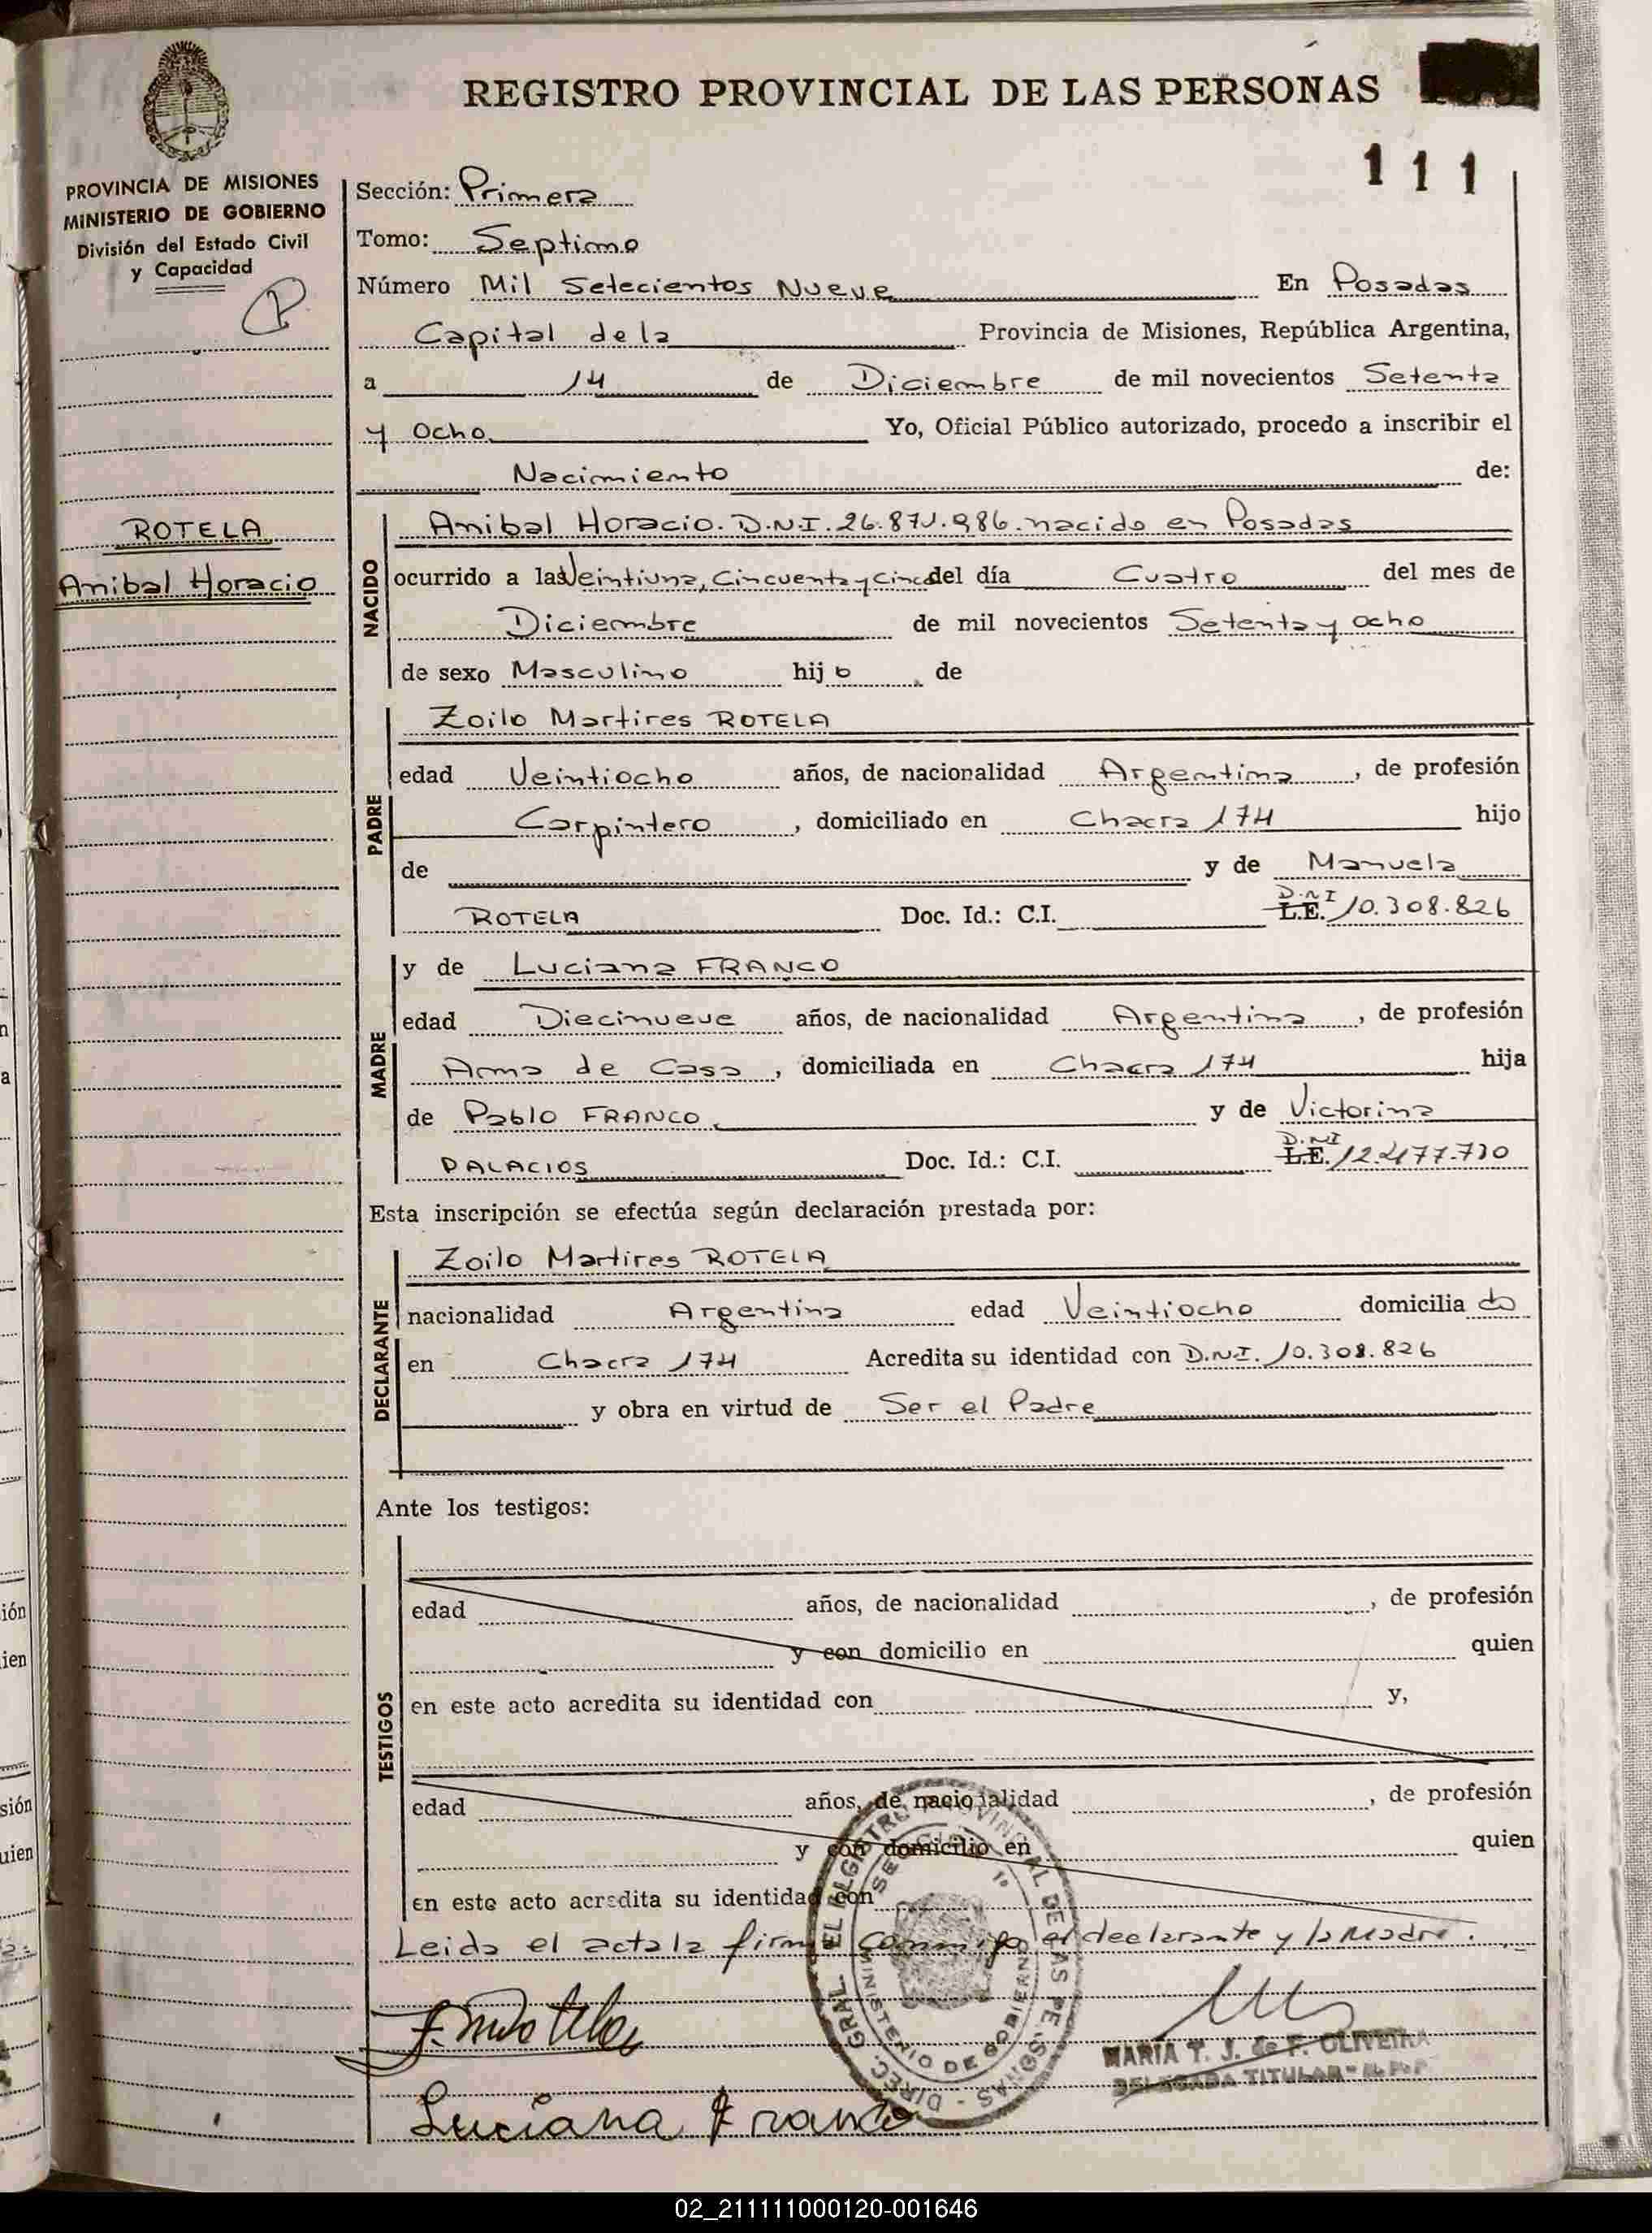 REGISTRO PROVINCIAL DE LAS PERSONAS
111
PROVINCIA DE MISIONES
MINISTERIO DE GOBIERNO
División del Estado Civil
y Capacidad
Sección: Primera
Tomo: Septimo
Número Mil Setecientos Nueve En Posadas
Capital de la Provincia de Misiones, República Argentina,
a 14 de Diciembre de mil novecientos Setenta
y Ocho Yo, Oficial Público autorizado, procedo a inscribir el
Nacimiento de:
ROTELA
Anibal Horacio
NACIDO
Anibal Horacio. D.N.I. 26.871.986. nacido en Posadas
ocurrido a las Veintiuna, Cincuenta y Cinco del día Cuatro del mes de
Diciembre de mil novecientos Setenta y Ocho
de sexo Masculino hijo de
PADRE
Zoilo Martires ROTELA
edad Veintiocho años, de nacionalidad Argentina, de profesión
Carpintero, domiciliado en Chacra 174 hijo
de y de Manuela
ROTELA Doc. Id.: C.I. L.E. D.N.I 10.308.826
MADRE
y de Luciana FRANCO
edad Diecinueve años, de nacionalidad Argentina, de profesión
Ama de Casa, domiciliada en Chacra 174 hija
de Pablo FRANCO y de Victorina
PALACIOS Doc. Id.: C.I. L.E. D.NI 12.477.710
Esta inscripción se efectúa según declaración prestada por:
DECLARANTE
Zoilo Martires ROTELA
nacionalidad Argentina edad Veintiocho domiciliado
en Chacra 174 Acredita su identidad con D.N.I. 10.308.826
y obra en virtud de Ser el Padre
Ante los testigos:
TESTIGOS
edad años, de nacionalidad , de profesión
y con domicilio en quien
en este acto acredita su identidad con y,
edad años, de nacionalidad , de profesión
y con domicilio en quien
en este acto acredita su identidad con
Leida el acta la firma conmigo el declarante y la Madre.
DIREC. GRAL. DEL REGISTRO PROVINCIAL DE LAS PERSONAS
MINISTERIO DE GOBIERNO
MARIA T. J. de F. OLIVEIRA
DELEGADA TITULAR - R.P.P.
Luciana Franco
02_211111000120-001646